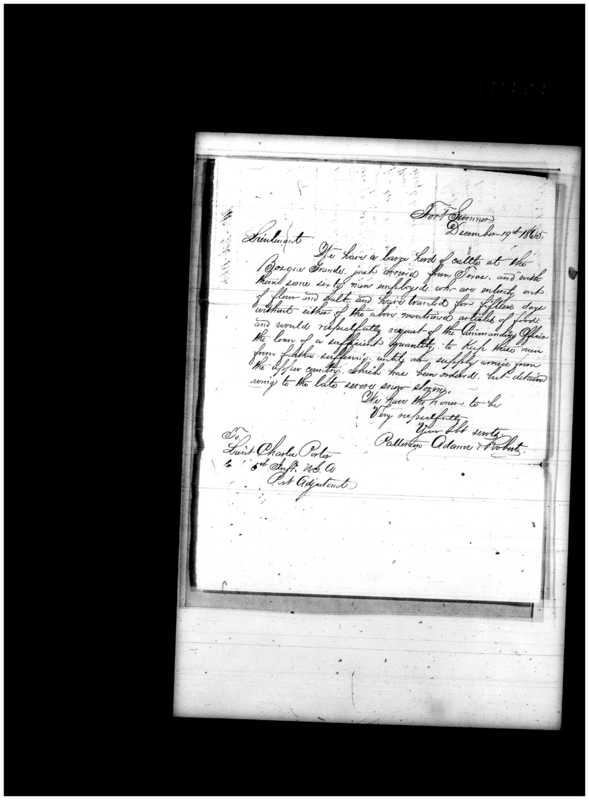 Fort Sumner
December 19th 1865.
Lieutenant
We have a large herd of cattle at the
Bosque Grande, just arrived from Texas, and with
them some sixty men employed who are entirely out
of flour and salt, and have traveled for fifteen days
without either of the above mentioned articles of food
and would respectfully request of the Commanding Officer
the loan of a sufficient quantity to keep these men
from further suffering until our supply arrives from
the upper country, which has been ordered, but detained
owing to the late severe snow storms.
We have the honor to be
Very respectfully
Your obt servts
Patterson Adams & Robert
To
Lieut Charles Porter
5th Inft. U.S.A
Post Adjutant